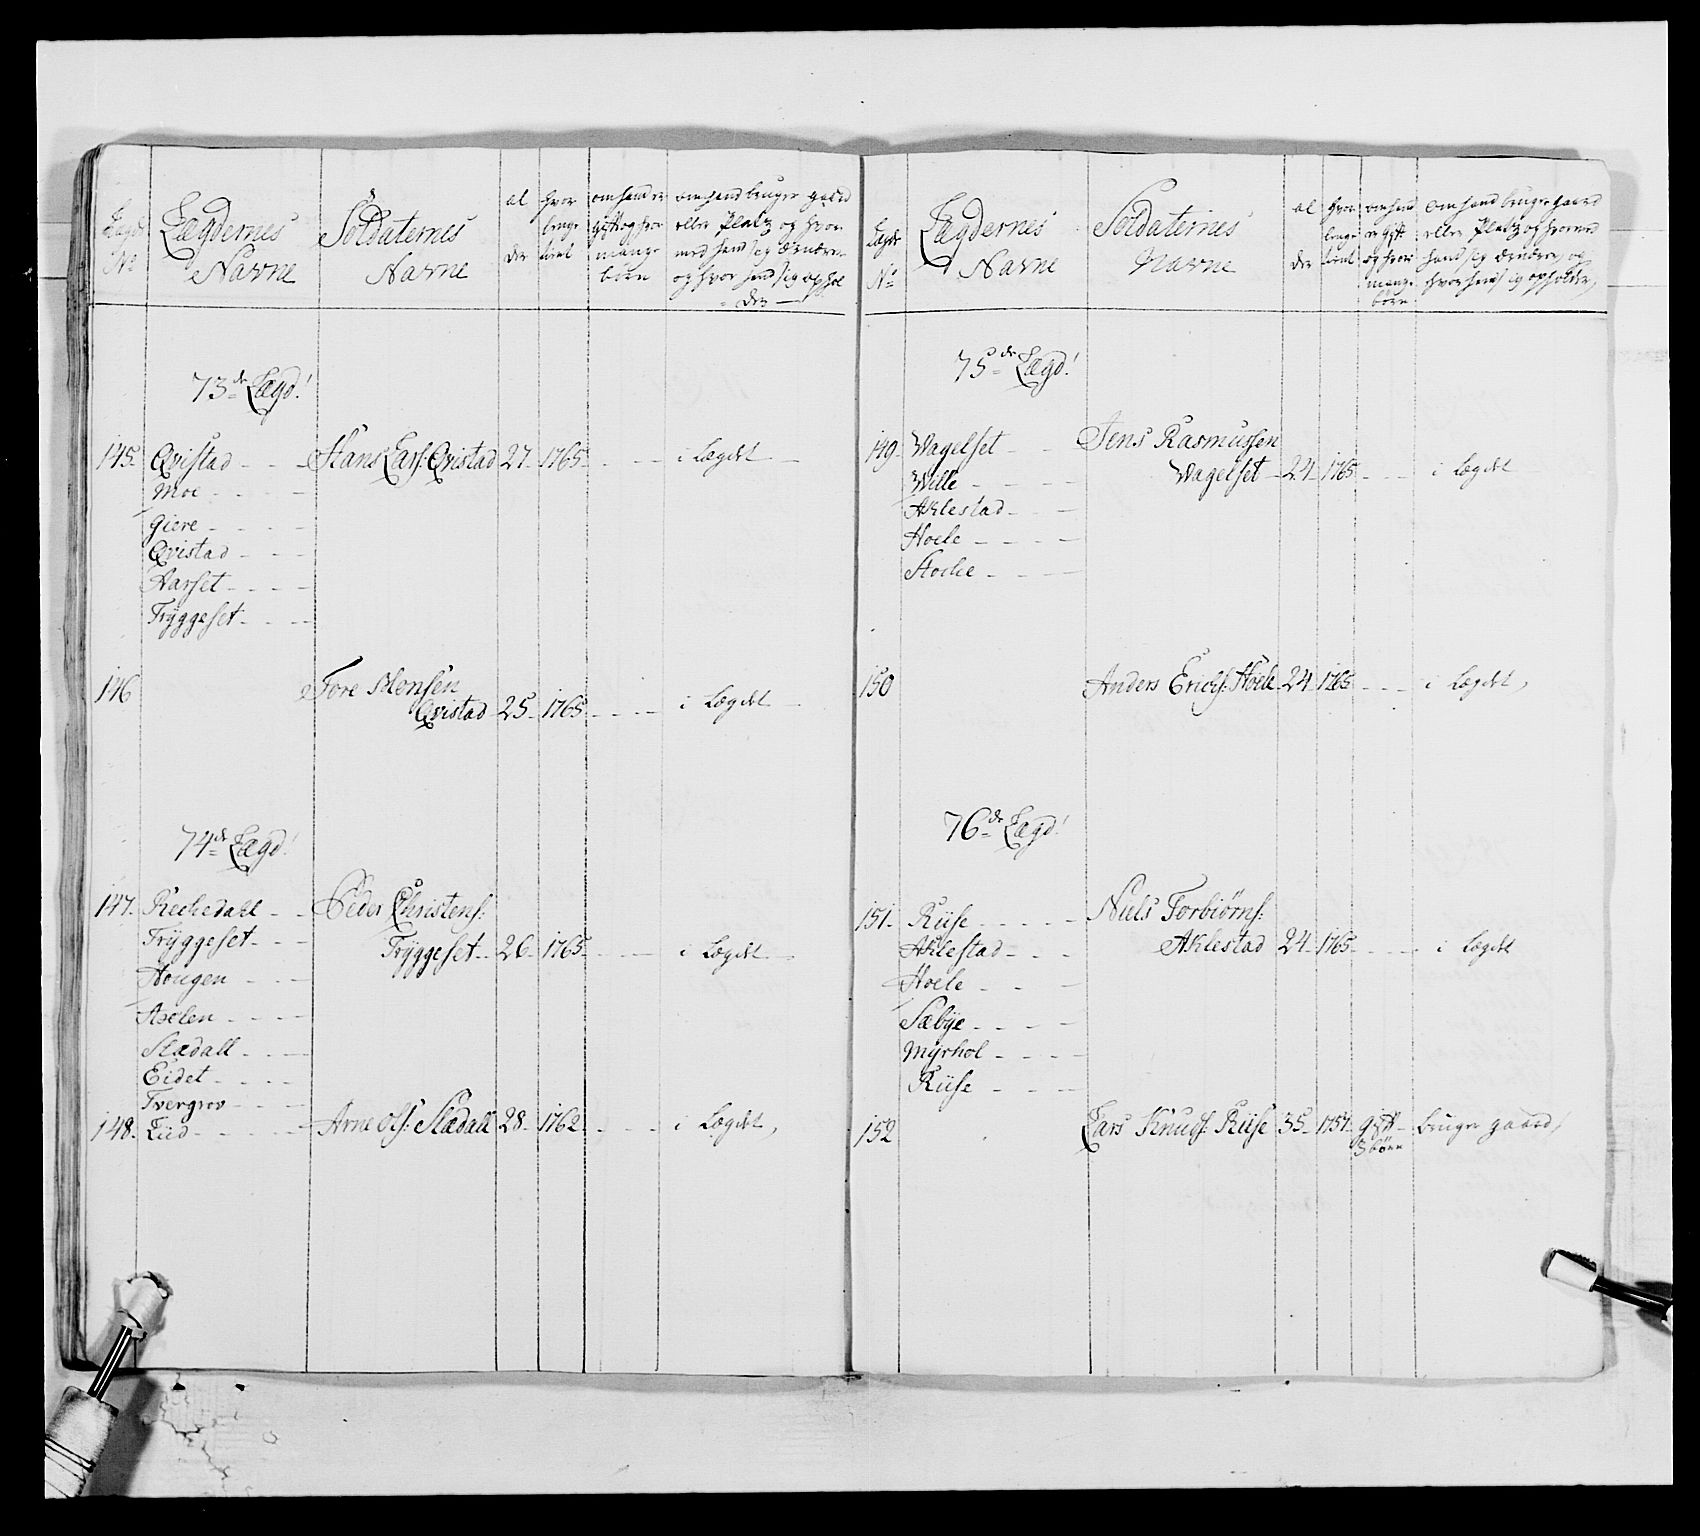 Lægds
No
Lægdernes
Navne
Soldaternes
Navne
al
der
hvor
lenge
tient
om hand er
gift og hvor
mange
børn
om hand bruger gaard
eller Platz og hvor
med hand sig ernærer
og hvor hand sig ophol
der
73de Lægd!
145. Qvistad Hans Lars: Qvistad 27 1765 i Lægdet
Moe
Giere
Qvistad
Aarset
Trÿggeset
146 Tore Monsen
Qvistad 25 1765 i Lægdet
74de Lægd!
147. Rechedahl Peder Christens:
Trÿggeset Trÿggeset 26 1765 i Lægdet
Hougen
Axelen
Stædall
Eidet
Tvergrov
148. Liid Arne Ols: Stædall 28 1762 i Lægdet
Lægds
No
Lægdernes
Navne
Soldaternes
Navne
al
der
hvor
lenge
tient
om hand
er gift
og hvor
mange
børn
om hand bruger gaard
eller Platz og hvormed
hand sig ernærer, og
hvor hand sig opholder,
75de Lægd!
149 Wagelset Jens Rasmussen
Wille Wagelset 24 1765 i Lægdet
Aklestad
Hoele
Stocke
150 Anders Erichs: Hoele 24 1765 i Lægdet,
76de Lægd!
151. Riise Niels Torbiørns:
Aklestad Aklestad 24 1765 i Lægdet
Hoele
Sæbÿe
Mÿrhol
Riise
152 Lars Knuds: Riise 35 1751 gift bruger gaard,
3 børn